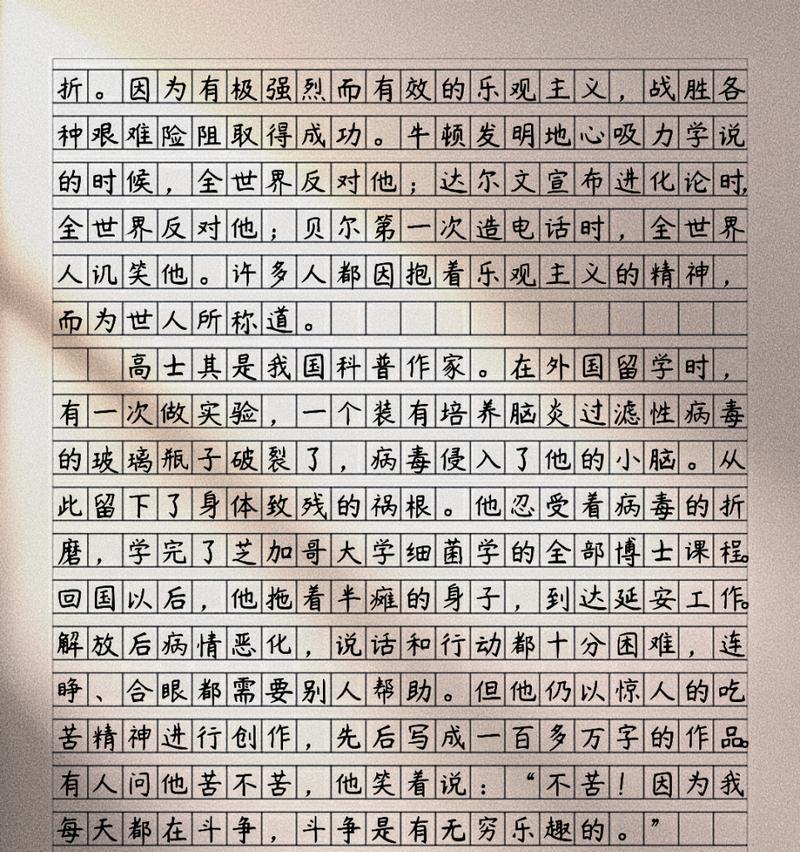 折。因为有极强烈而有效的乐观主义，战胜各
种艰难险阻取得成功。牛顿发明地心吸力学说
的时候，全世界反对他；达尔文宣布进化论时，
全世界反对他；贝尔第一次造电话时，全世界
人讥笑他。许多人都因抱着乐观主义的精神，
而为世人所称道。
高士其是我国科普作家。在外国留学时，
有一次做实验，一个装有培养脑炎过滤性病毒
的玻璃瓶子破裂了，病毒侵入了他的小脑。从
此留下了身体致残的祸根。他忍受着病毒的折
磨，学完了芝加哥大学细菌学的全部博士课程。
回国以后，他拖着半瘫的身子，到达延安工作。
解放后病情恶化，说话和行动都十分困难，连
睁、合眼都需要别人帮助。但他仍以惊人的吃
苦精神进行创作，先后写成一百多万字的作品。
有人问他苦不苦，他笑着说：“不苦！因为我
每天都在斗争，斗争是有无穷乐趣的。”